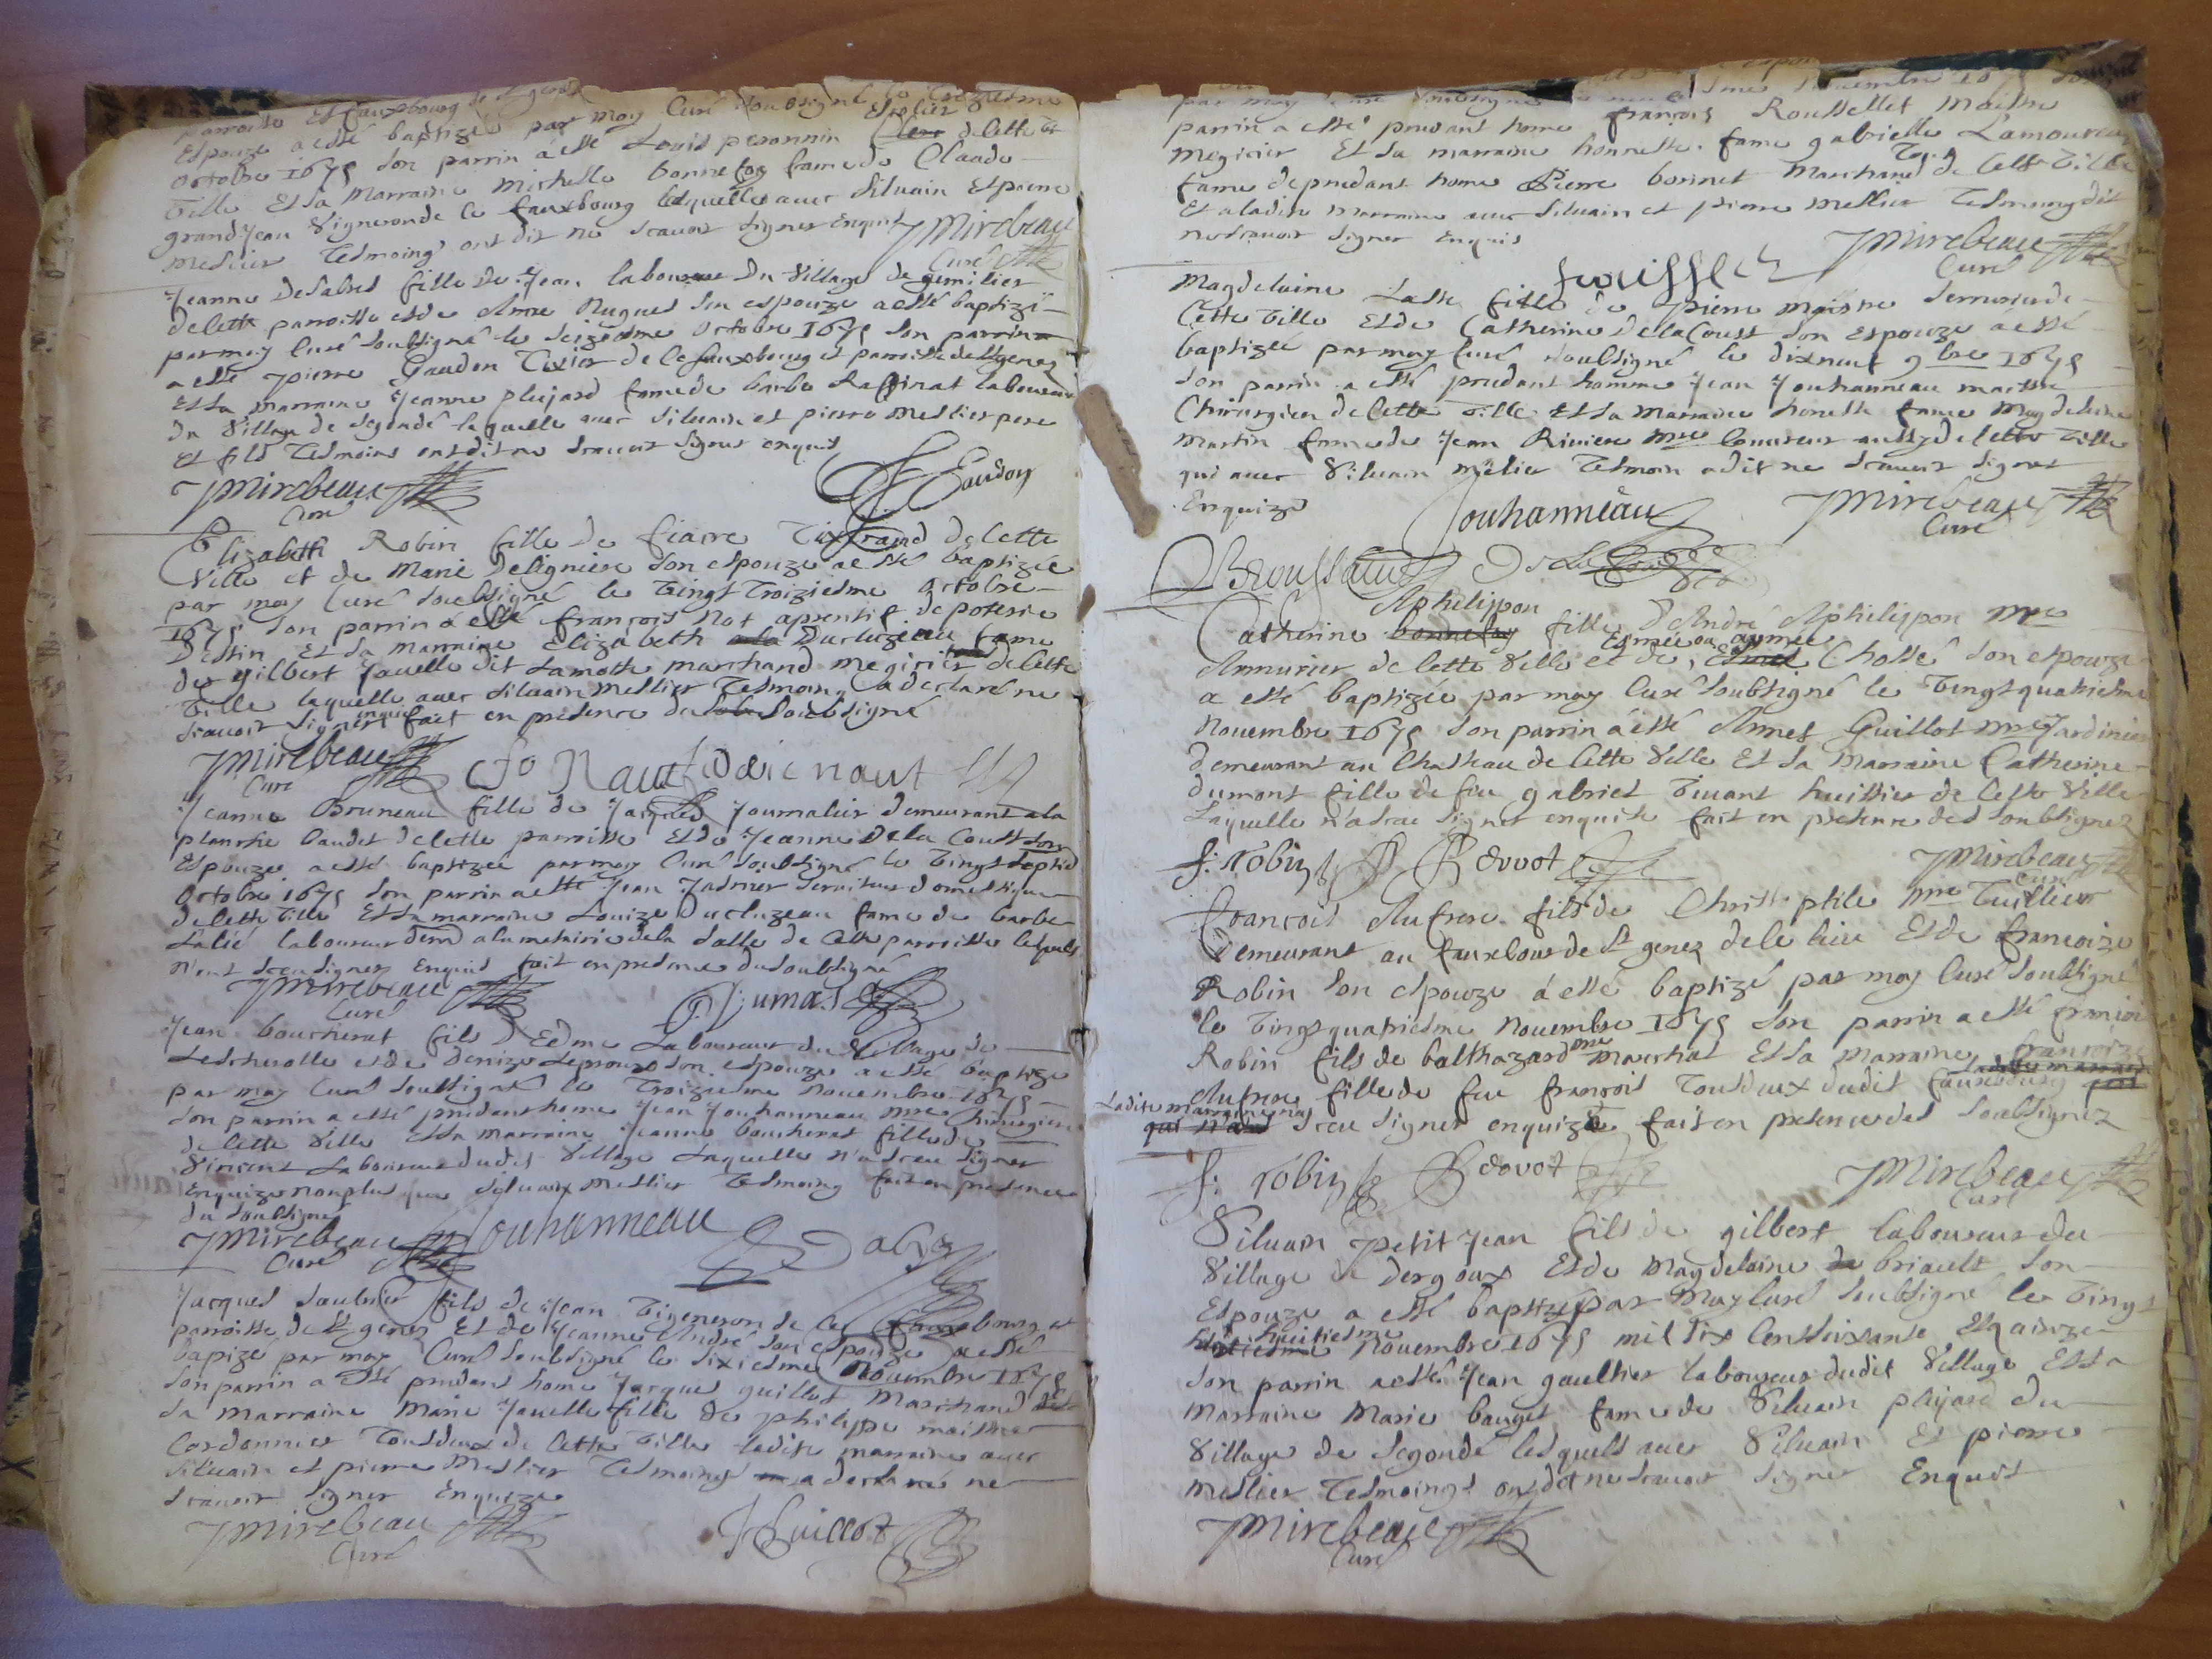 parroisse Et fauxbourg de St genes
Espouze a esté baptizé par moy Curé soubsigné le treziesme
octobre 1675 son parrin a esté Louis peronnin Esplier de Cette
Ville Et sa Marraine Michelle bonnefoy fame de Claude
grandJean Vigneron de Ce fauxbourg lesquelles avec Siluain Et pierre
Meslier Tesmoings ont dit ne scauoir signer Enquis JMirebeau
Curé
Jeanne Desabres fille de Jean laboureur Du Village de gimilier
de Cette parroisse et de Anne Nugues son espouze a esté baptizé
par moy Curé soubsigné le seiziesme octobre 1675 son parrin
a esté pierre Gaudon Tixier de Ce fauxbourg et parroisse de St genes
Et sa marraine Jeanne plejard fame de barbe Raffinat laboureur
du Village de segondé laquelle avec siluain et pierre Meslier pere
et fils Tesmoins ont dit ne scauoir signer enquis
JMirebeau Gaudon
Curé
Elizabeth Robin fille de fiacre Tixerand de Cette
Ville et de Marie Delignière son espouze a esté baptizée
par moy Curé soubsigné le Vingt Troiziesme octobre
1675 son parrin a esté françois Not aprentif de poterie
Destin Et sa marraine Elizabeth Ducluzeau fame
de gilbert Jauelle dit Lamothe marchand megicier de Cette
Ville laquelle avec Siluain Meslier Tesmoing a declaré ne
scauoir signer enquis fait en presence du soubsigné
JMirebeau
Curé
Jeanne Bruneau fille de Jacques Journalier demeurant a la
planche baudet de Cette parroisse Et de Jeanne De la Coust son
Espouze a esté baptizée par moy Curé soubsigné le Vingt septies
octobre 1675 son parrin a esté Jean Jasmier seruiteur domestique
de Cette Ville Et sa marraine Louize Ducluzeau fame de barbe
Lalié laboureur dem a la metairie de la salle de Cette parroisse lesquels
n'ont sceu signer Enquis fait en presence du soubsigné
JMirebeau Dumas
Curé
Jean boucherat fils d'Edme Laboureur du Village de
et de Denize son espouze a esté baptizé
par moy Curé soubsigné le Troiziesme Nouembre 1675
son parrin a esté prudant home Jean Jouhanneau mre Chirurgien
de Cette Ville Et sa marraine Jeanne boucherat fille de
Vincent Laboureur dudit Village Laquelle n'a sceu signer
Enquize non plus que Siluain Meslier Tesmoing fait en presence
du soubsigné
JMirebeau Jouhanneau
Curé
Jacques saulnier fils de Jean Vigneron de Ce fauxbourg et
parroisse de St genes Et de Jeanne André son espouze a esté
bapizé par moy Curé soubsigné le sixiesme Nouembre 1675
son parrin a esté prudant home Jacques guillot Marchand Et
sa marraine Marie Jauelle fille de philippe maistre
Cordonnier Tous deux de Cette Ville ladite marraine avec
Siluain et pierre Meslier Tesmoings a declaré ne
scauoir signer Enquize
JMirebeau JGuillot
Curé
par moy Curé soubsigné Nouembre 1675
parrin a esté prudant home françois Rousselet Maistre
Megicier Et sa marraine honneste fame gabrielle Lamoureux
fame de prudant home Pierre bonnet Marchand de Cette Ville
Et a ladite marraine avec siluain et pierre Meslier Tesmoings dit
ne scauoir signer Enquis
JMirebeau
Curé
Magdelaine fille de pierre maistre serrurier de
Cette Ville Et de Catherine De la Coust son Espouze a esté
baptizée par moy Curé soubsigné le dixneuf 9bre 1675
son parrin a esté prudant homme Jean Jouhanneau maistre
Chirurgien de Cette Ville Et sa Marraine honeste fame Magdeleine
Martin fame de Jean Riviere mre Couureur aussy de Cette Ville
qui avec Siluain Melier Tesmoin a dit ne scauoir signer
Enquize
Jouhanneau JMirebeau
Curé
Aphilippon
Catherine bonnefoy fille D'André Aphilippon mre
Esmée ou aymée
Armurier de Cette Ville et de Chossé son espouze
a esté baptizée par moy Curé soubsigné le Vingt quatriesme
Nouembre 1675 son parrin a esté Annet Guillot mre Jardinier
demeurant au Chasteau de Cette Ville Et sa Marraine Catherine
dumont fille de feu gabriel Viuant huissier de Cette Ville
Laquelle n'a sceu signer enquise fait en presence des soubsignez
f: robin JMirebeau
Curé
françois Aufrere fils de Christophle mre Tuillier
Demeurant au fauxbour de St genez de Ce lieu Et de françoize
Robin son espouze a esté baptizé par moy Curé soubsigné
le Vingt quatriesme Nouembre 1675 son parrin a esté françois
Robin fils de balthazard mre Mareschal Et sa Marraine françoize
Aufrere fille de feu françois Tous deux dudit fauxbourg qui
Ladite marraine n'a
qui n'a sceu signer enquize fait en presence des soubsignez
f: robin JMirebeau
Curé
Siluain petit Jean fils de gilbert laboureur du
Village de Dergoux Et de Magdelaine briault son
Espouze a esté baptizé par Moy Curé soubsigné le Vingt
huitiesme
Nouembre 1675 mil six Cens soixante Et quinze
son parrin a esté Jean gaultier laboureur dudit Village Et sa
Marraine Marie bauget fame de Siluain plejard du
Village de Segondé lesquels avec Siluain Et pierre
Meslier Tesmoings ont dit ne scauoir signer Enquis
JMirebeau
Curé